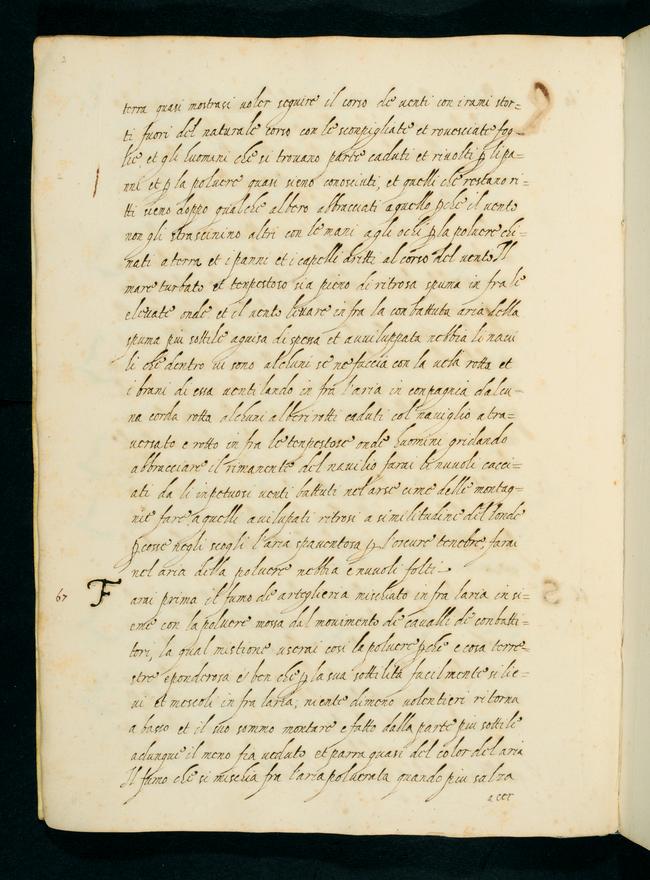 terra quasi mostrasi uoler seguire il corso de uenti con i rami stor=
ti fuori del naturale corso con le sconpigliate et rouesciate fog=
lie et gli huomini che si trouano parte caduti et riuolti ꝑ li pa=
nni et ꝑ la poluere quasi sieno conosciuti, et quelli che restano ri=
tti sieno doppo qualche albero abbracciati a quello ꝑche il uento
non gli strascinino altri con le mani a gli ochi ꝑ la poluere chi=
nati a terra et i panni et i capelli dritti al corso del uento Il
mare turbato et tenpestoso sia pieno di ritrosa spuma in fra le
eleuate onde et il uento leuare in fra la conbattuta aria della
spuma piu sottile a guisa di spessa et auuiluppata nebbia li naui
li che dentro ui sono alchuni se ne faccia con la uela rotta et
i brani di essa uentilando in fra l'aria in conpagnia dalcu=
na corda rotta alchuni alberi rotti caduti col nauiglio atra=
uersato e rotto in fra le tenpestose onde huomini gridando
abbracciare il rimanente del nauilio farai le nuuoli cacci=
ati da li inpetuosi uenti battuti nel'arse cime delle montag=
nie fare a quelle auilupati ritrosi a similitudine del londe
ꝑcosse negli scogli l'aria spauentosa ꝑ l'oscure tenebre, farai
nel aria della poluere nebbia e nuuoli folti.
67 Farai prima il fumo de artegliería mischiato in fra laria in si=
eme con la poluere mossa dal mouimento de caualli de conbatti=
tori, la qual mistione userai cosi la poluere ꝑche e cosa terre=
stre e ponderosa e ben che ꝑ la sua sottilità facilmente si lie=
ui et mescoli in fra laria, niente dimeno uolentieri ritorna
a basso et il suo sommo montare e fatto dalla parte piu sottile
adunque il meno fia ueduto et parra quasi del color del aria
Il fumo che si mischia fra l'aria poluerata quando piu s'alza
a cer